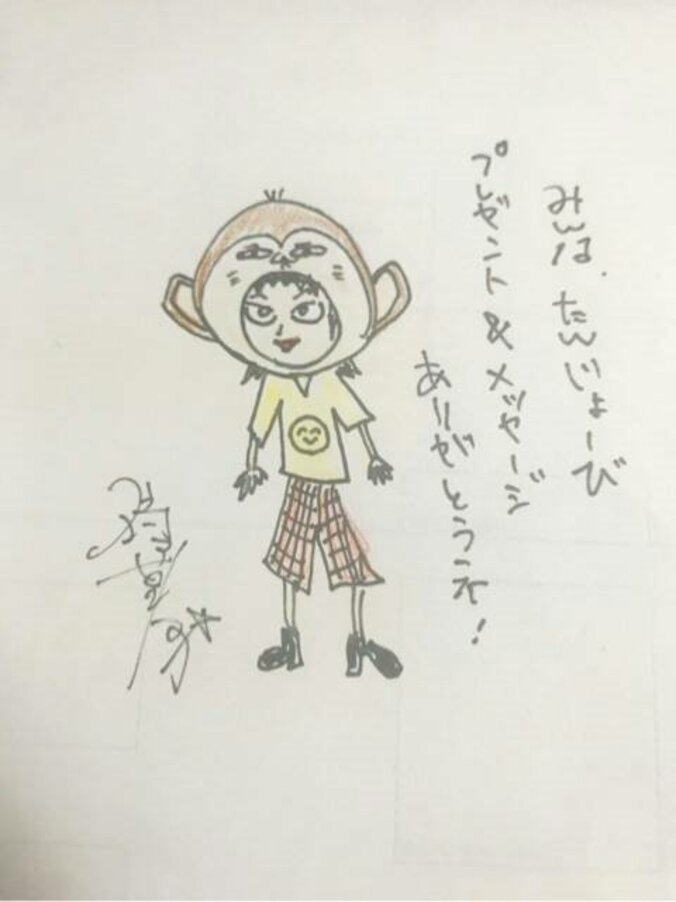 みんな、たんじょーび
プレゼント&メッセージ
ありがとうネ!